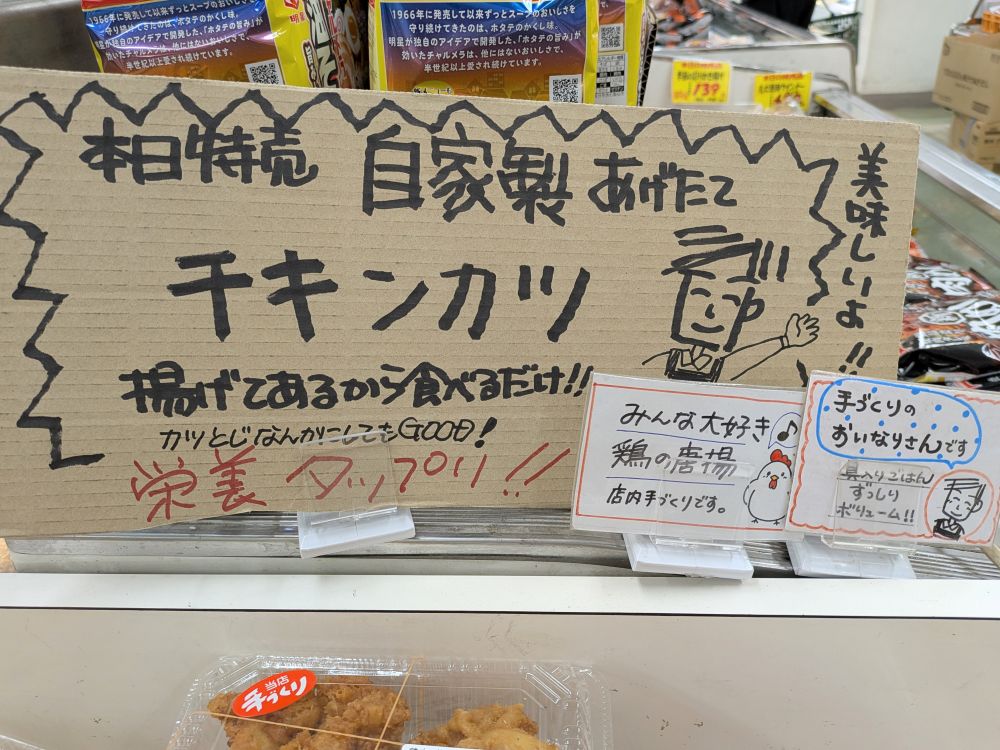 1966年に発売して以来ずっとスープのおいしさを
守り続けてきたのは、ホタテのかくし味。
明星が独自のアイデアで開発した、「ホタテの旨み」が
効いたチャルメラは、他にはないおいしさで、
半世紀以上愛され続けています。
1966年に発売して以来ずっとスープのおいしさを
守り続けてきたのは、ホタテのかくし味。
明星が独自のアイデアで開発した、「ホタテの旨み」が
効いたチャルメラは、他にはないおいしさで、
半世紀以上愛され続けています。
139
本日特売 自家製 あげたて
チキンカツ
美味しいよ!!
揚げてあるから食べるだけ!!
カツとじなんかにしてもGOOD!
栄養 タップリ!!
みんな大好き
鶏の唐揚
店内手づくりです。
手づくりの
おいなりさんです
具入りごはん
ずっしり
ボリューム!!
当店
手づくり